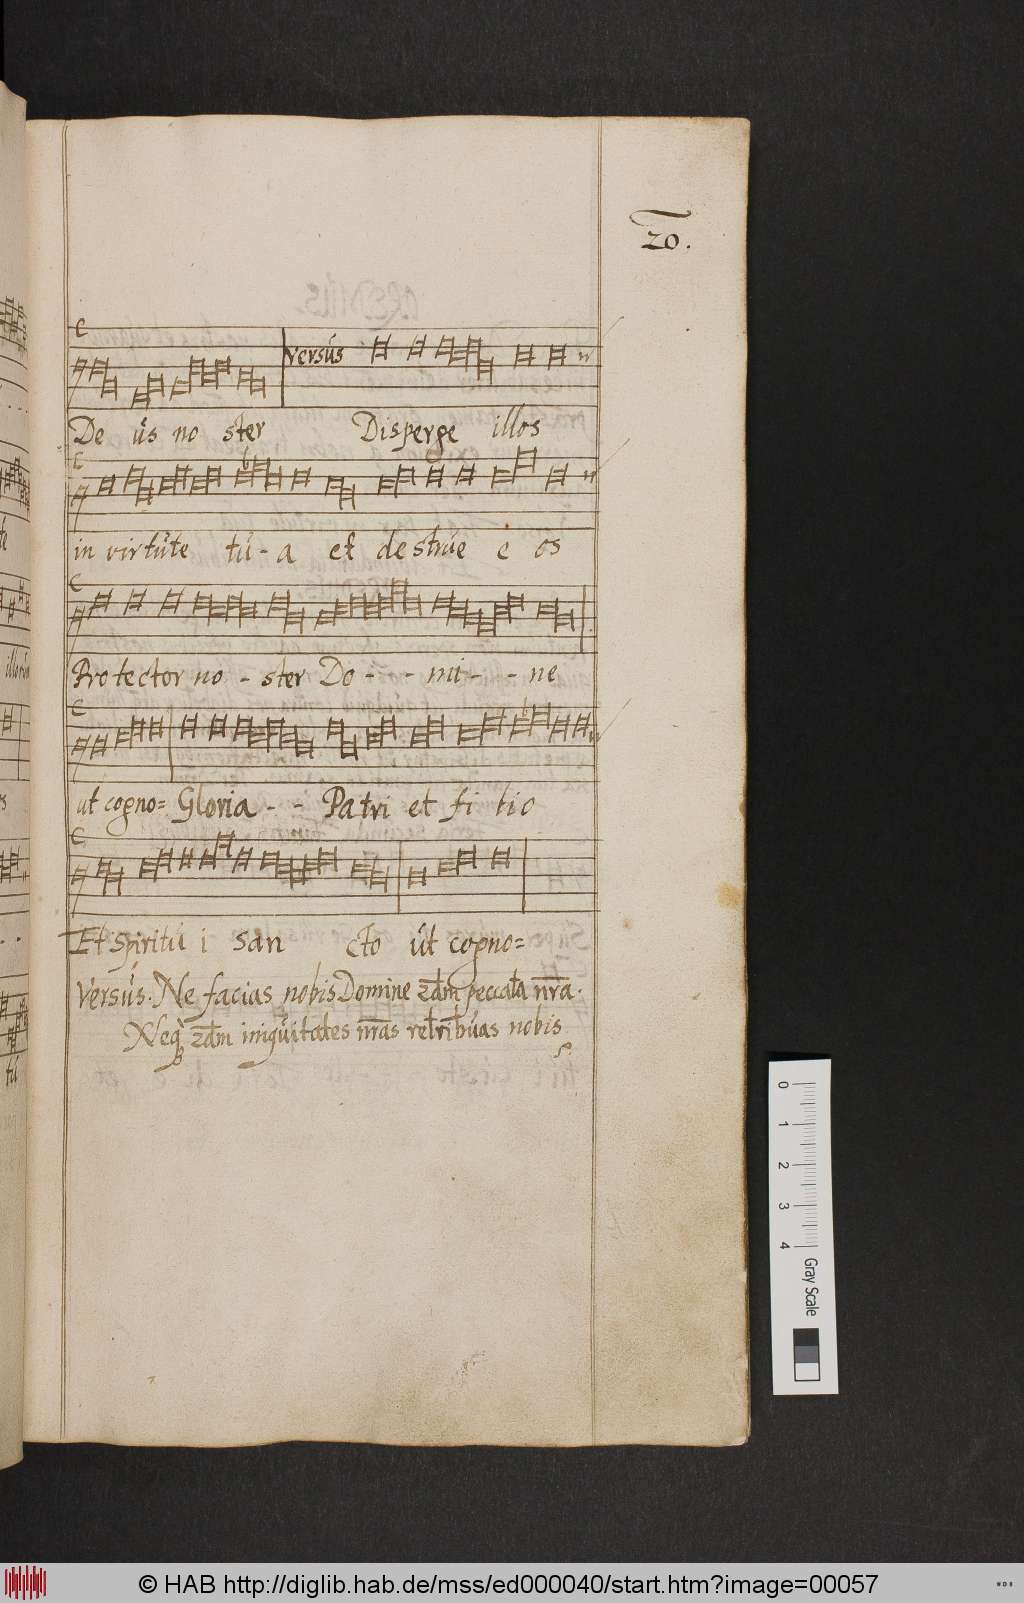 20.
Versus
De us no ster Disperge illos
in virtute tu - a et destrue e os
Protector no - ster Do - - mi - - ne
ut cogno= Gloria - - Patri et fi lio
Et spiritu i san cto ut cogno=
Versus. Ne facias nobis Domine zdm peccata nra.
Neq zdm iniquitates nras retribuas nobis
0 1 2 3 4 Gray Scale
© HAB http://diglib.hab.de/mss/ed000040/start.htm?image=00057